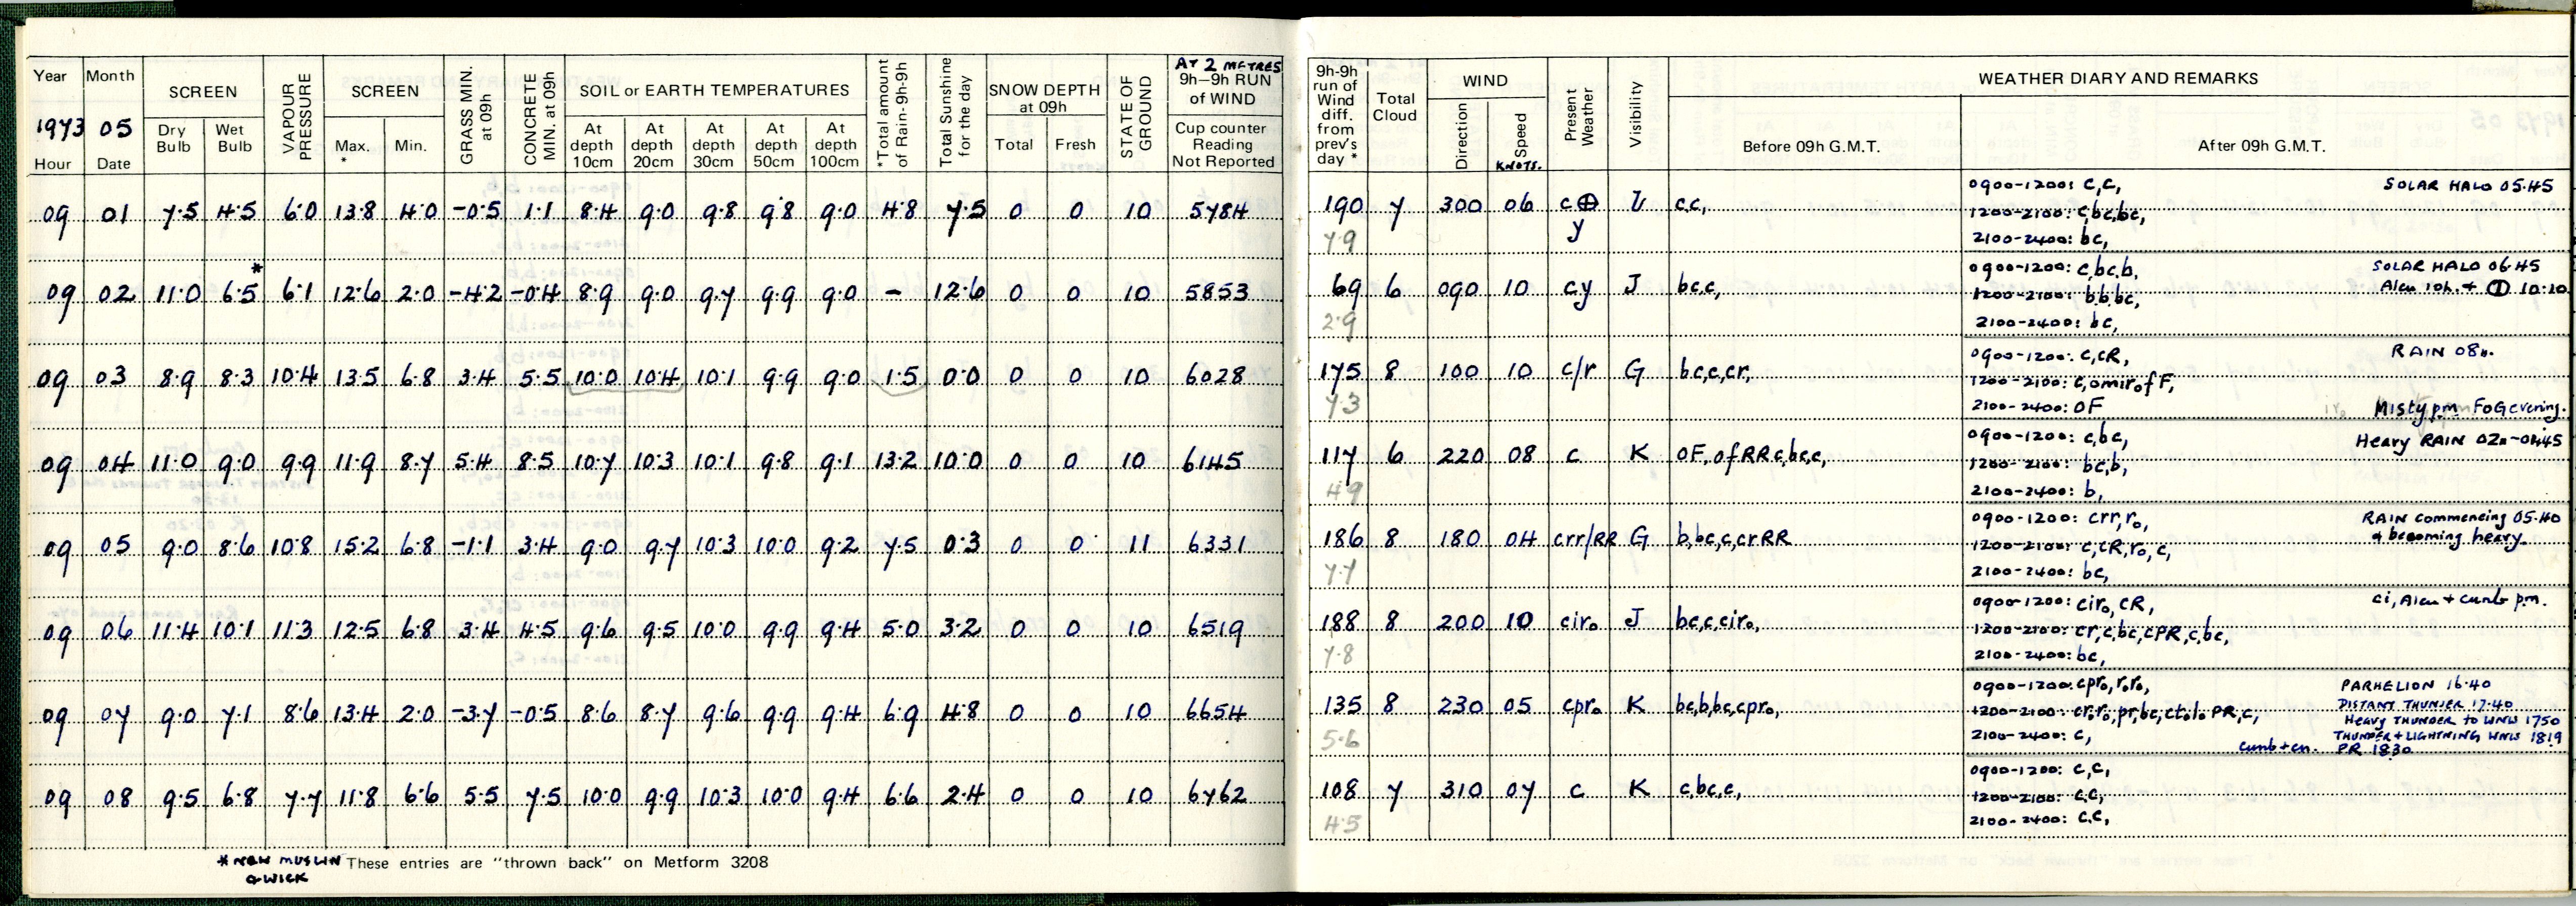 Year Month SCREEN VAPOUR PRESSURE SCREEN GRASS MIN. at 09h CONCRETE MIN. at 09h SOIL or EARTH TEMPERATURES *Total amount of Rain-9h-9h Total Sunshine for the day SNOW DEPTH at 09h STATE OF GROUND AT 2 METRES 9h-9h RUN of WIND
1973 05 Dry Bulb Wet Bulb Max. * Min. At depth 10cm At depth 20cm At depth 30cm At depth 50cm At depth 100cm Total Fresh Cup counter Reading Not Reported
Hour Date
09 01 7.5 4.5 6.0 13.8 4.0 -0.5 1.1 8.4 9.0 9.8 9.8 9.0 4.8 7.5 0 0 10 5784
09 02 11.0 6.5* 6.1 12.6 2.0 -4.2 -0.4 8.9 9.0 9.7 9.9 9.0 - 12.6 0 0 10 5853
09 03 8.9 8.3 10.4 13.5 6.8 3.4 5.5 10.0 10.4 10.1 9.9 9.0 1.5 0.0 0 0 10 6028
09 04 11.0 9.0 9.9 11.9 8.7 5.4 8.5 10.7 10.3 10.1 9.8 9.1 13.2 10.0 0 0 10 6145
09 05 9.0 8.6 10.8 15.2 6.8 -1.1 3.4 9.0 9.7 10.3 10.0 9.2 7.5 0.3 0 0 11 6331
09 06 11.4 10.1 11.3 12.5 6.8 3.4 4.5 9.6 9.5 10.0 9.9 9.4 5.0 3.2 0 0 10 6519
09 07 9.0 7.1 8.6 13.4 2.0 -3.7 -0.5 8.6 8.7 9.6 9.9 9.4 6.9 4.8 0 0 10 6654
09 08 9.5 6.8 7.7 11.8 6.6 5.5 7.5 10.0 9.9 10.3 10.0 9.4 6.6 2.4 0 0 10 6762
* NEW MUSLIN & WICK These entries are "thrown back" on Metform 3208
9h-9h run of Wind diff. from prev's day * Total Cloud WIND Present Weather Visibility WEATHER DIARY AND REMARKS
Direction Speed KNOTS. Before 09h G.M.T. After 09h G.M.T.
190 7 300 06 c⊕ c,c, 0900-1200: c,c, SOLAR HALO 05.45
y 1200-2100: c,bc,bc,
7.9 2100-2400: bc,
69 6 090 10 cy J bc,c, 0900-1200: c,bc,b, SOLAR HALO 06.45
1200-2100: b,b,bc, Alcu 10h. + ① 10.10
2.9 2100-2400: bc,
175 8 100 10 c/r G bc,c,cr, 0900-1200: c,cR, RAIN 08h.
1200-2100: c,omir₀fF,
7.3 2100-2400: OF Misty pm FOG evening.
117 6 220 08 c K OF,ofRRc,bc,c, 0900-1200: c,bc, Heavy RAIN 02h-0445
1200-2100: bc,b,
4.9 2100-2400: b,
186 8 180 04 crr/RR G b,bc,c,crRR 0900-1200: crr,r₀, RAIN commencing 05.40
1200-2100: c,cR,r₀,c, & becoming heavy.
7.7 2100-2400: bc,
188 8 200 10 cir₀ J bc,c,cir₀, 0900-1200: cir₀,cR, ci, Alcu + cunb pm.
1200-2100: cr,c,bc,cPR,c,bc,
7.8 2100-2400: bc,
135 8 230 05 cpr₀ K bc,b,bc,cpr₀, 0900-1200: cpr₀,r₀r₀, PARHELION 16.40
DISTANT THUNDER 17.40
1200-2100: cr,r₀,pr,bc,ct₀l₀PR,c, Heavy THUNDER to WNW 1750
5.6 2100-2400: c, THUNDER + LIGHTNING WNW 1819
cunb+cn. PR 1830
108 7 310 07 c K c,bc,c, 0900-1200: c,c,
1200-2100: c,c,
4.5 2100-2400: c,c,